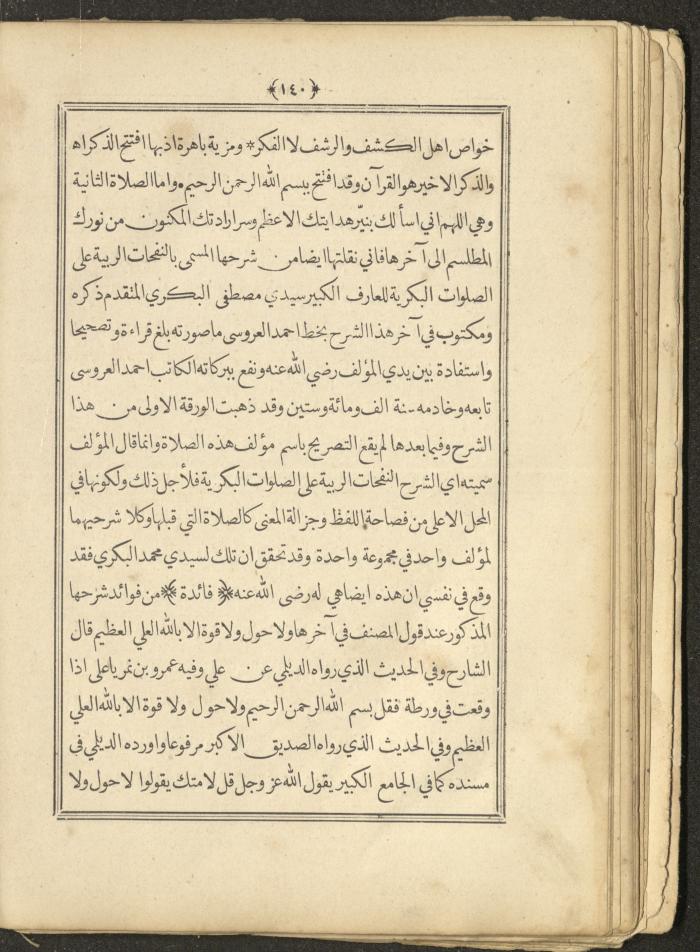 ﴿١٤٠﴾
خواص اهل الكشف والرشف لا الفكر * ومزية باهرة اذ بها افتتح الذكر اه
والذكر الاخير هو القرآن وقد افتتح ببسم الله الرحمن الرحيم • واما الصلاة الثانية
وهي اللهم اني اسألك بنيّر هدايتك الاعظم وسر ارادتك المكنون من نورك
المطلسم الى آخرها فاني نقلتها ايضا من شرحها المسمى بالنفحات الربية على
الصلوات البكرية للعارف الكبير سيدي مصطفى البكري المتقدم ذكره
ومكتوب في آخر هذا الشرح بخط احمد العروسي ما صورته بلغ قراءة وتصحيحا
واستفادة بين يدي المؤلف رضي الله عنه ونفع ببركاته الكاتب احمد العروسى
تابعه وخادمه سنة الف ومائة وستين وقد ذهبت الورقة الاولى من هذا
الشرح وفيما بعدها لم يقع التصريح باسم مؤلف هذه الصلاة وانما قال المؤلف
سميته اي الشرح النفحات الربية على الصلوات البكرية فلأجل ذلك ولكونها في
المحل الاعلى من فصاحة اللفظ وجزالة المعنى كالصلاة التي قبلها وكلا شرحيهما
لمؤلف واحد في مجموعة واحدة وقد تحقق ان تلك لسيدي محمد البكري فقد
وقع في نفسي ان هذه ايضا هي له رضى الله عنه ﴿ فائدة ﴾ من فوائد شرحها
المذكور عند قول المصنف في آخرها ولا حول ولا قوة الا بالله العلي العظيم قال
الشارح وفي الحديث الذي رواه الديلي عن علي وفيه عمرو بن نمر يا على اذا
وقعت في ورطة فقل بسم الله الرحمن الرحيم ولا حول ولا قوة الا بالله العلي
العظيم وفي الحديث الذي رواه الصديق الاكبر مرفوعا واورده الديلي في
مسنده كما في الجامع الكبير يقول الله عز وجل قل لامتك يقولوا لا حول ولا